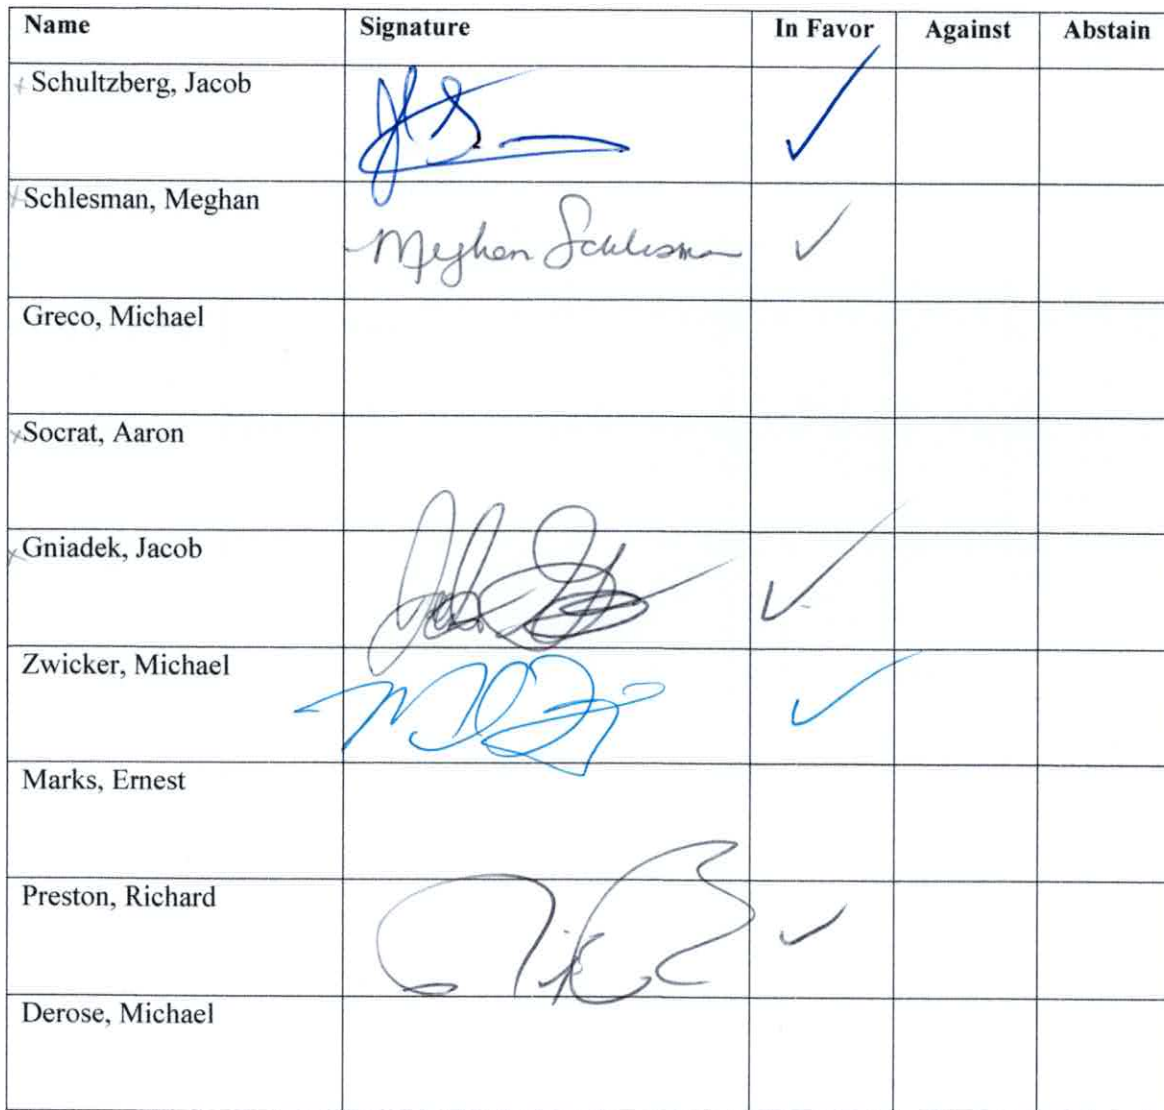 Name Signature In Favor Against Abstain
Schultzberg, Jacob ✓
Schlesman, Meghan Meghan Schlesman ✓
Greco, Michael
Socrat, Aaron
Gniadek, Jacob ✓
Zwicker, Michael ✓
Marks, Ernest
Preston, Richard ✓
Derose, Michael